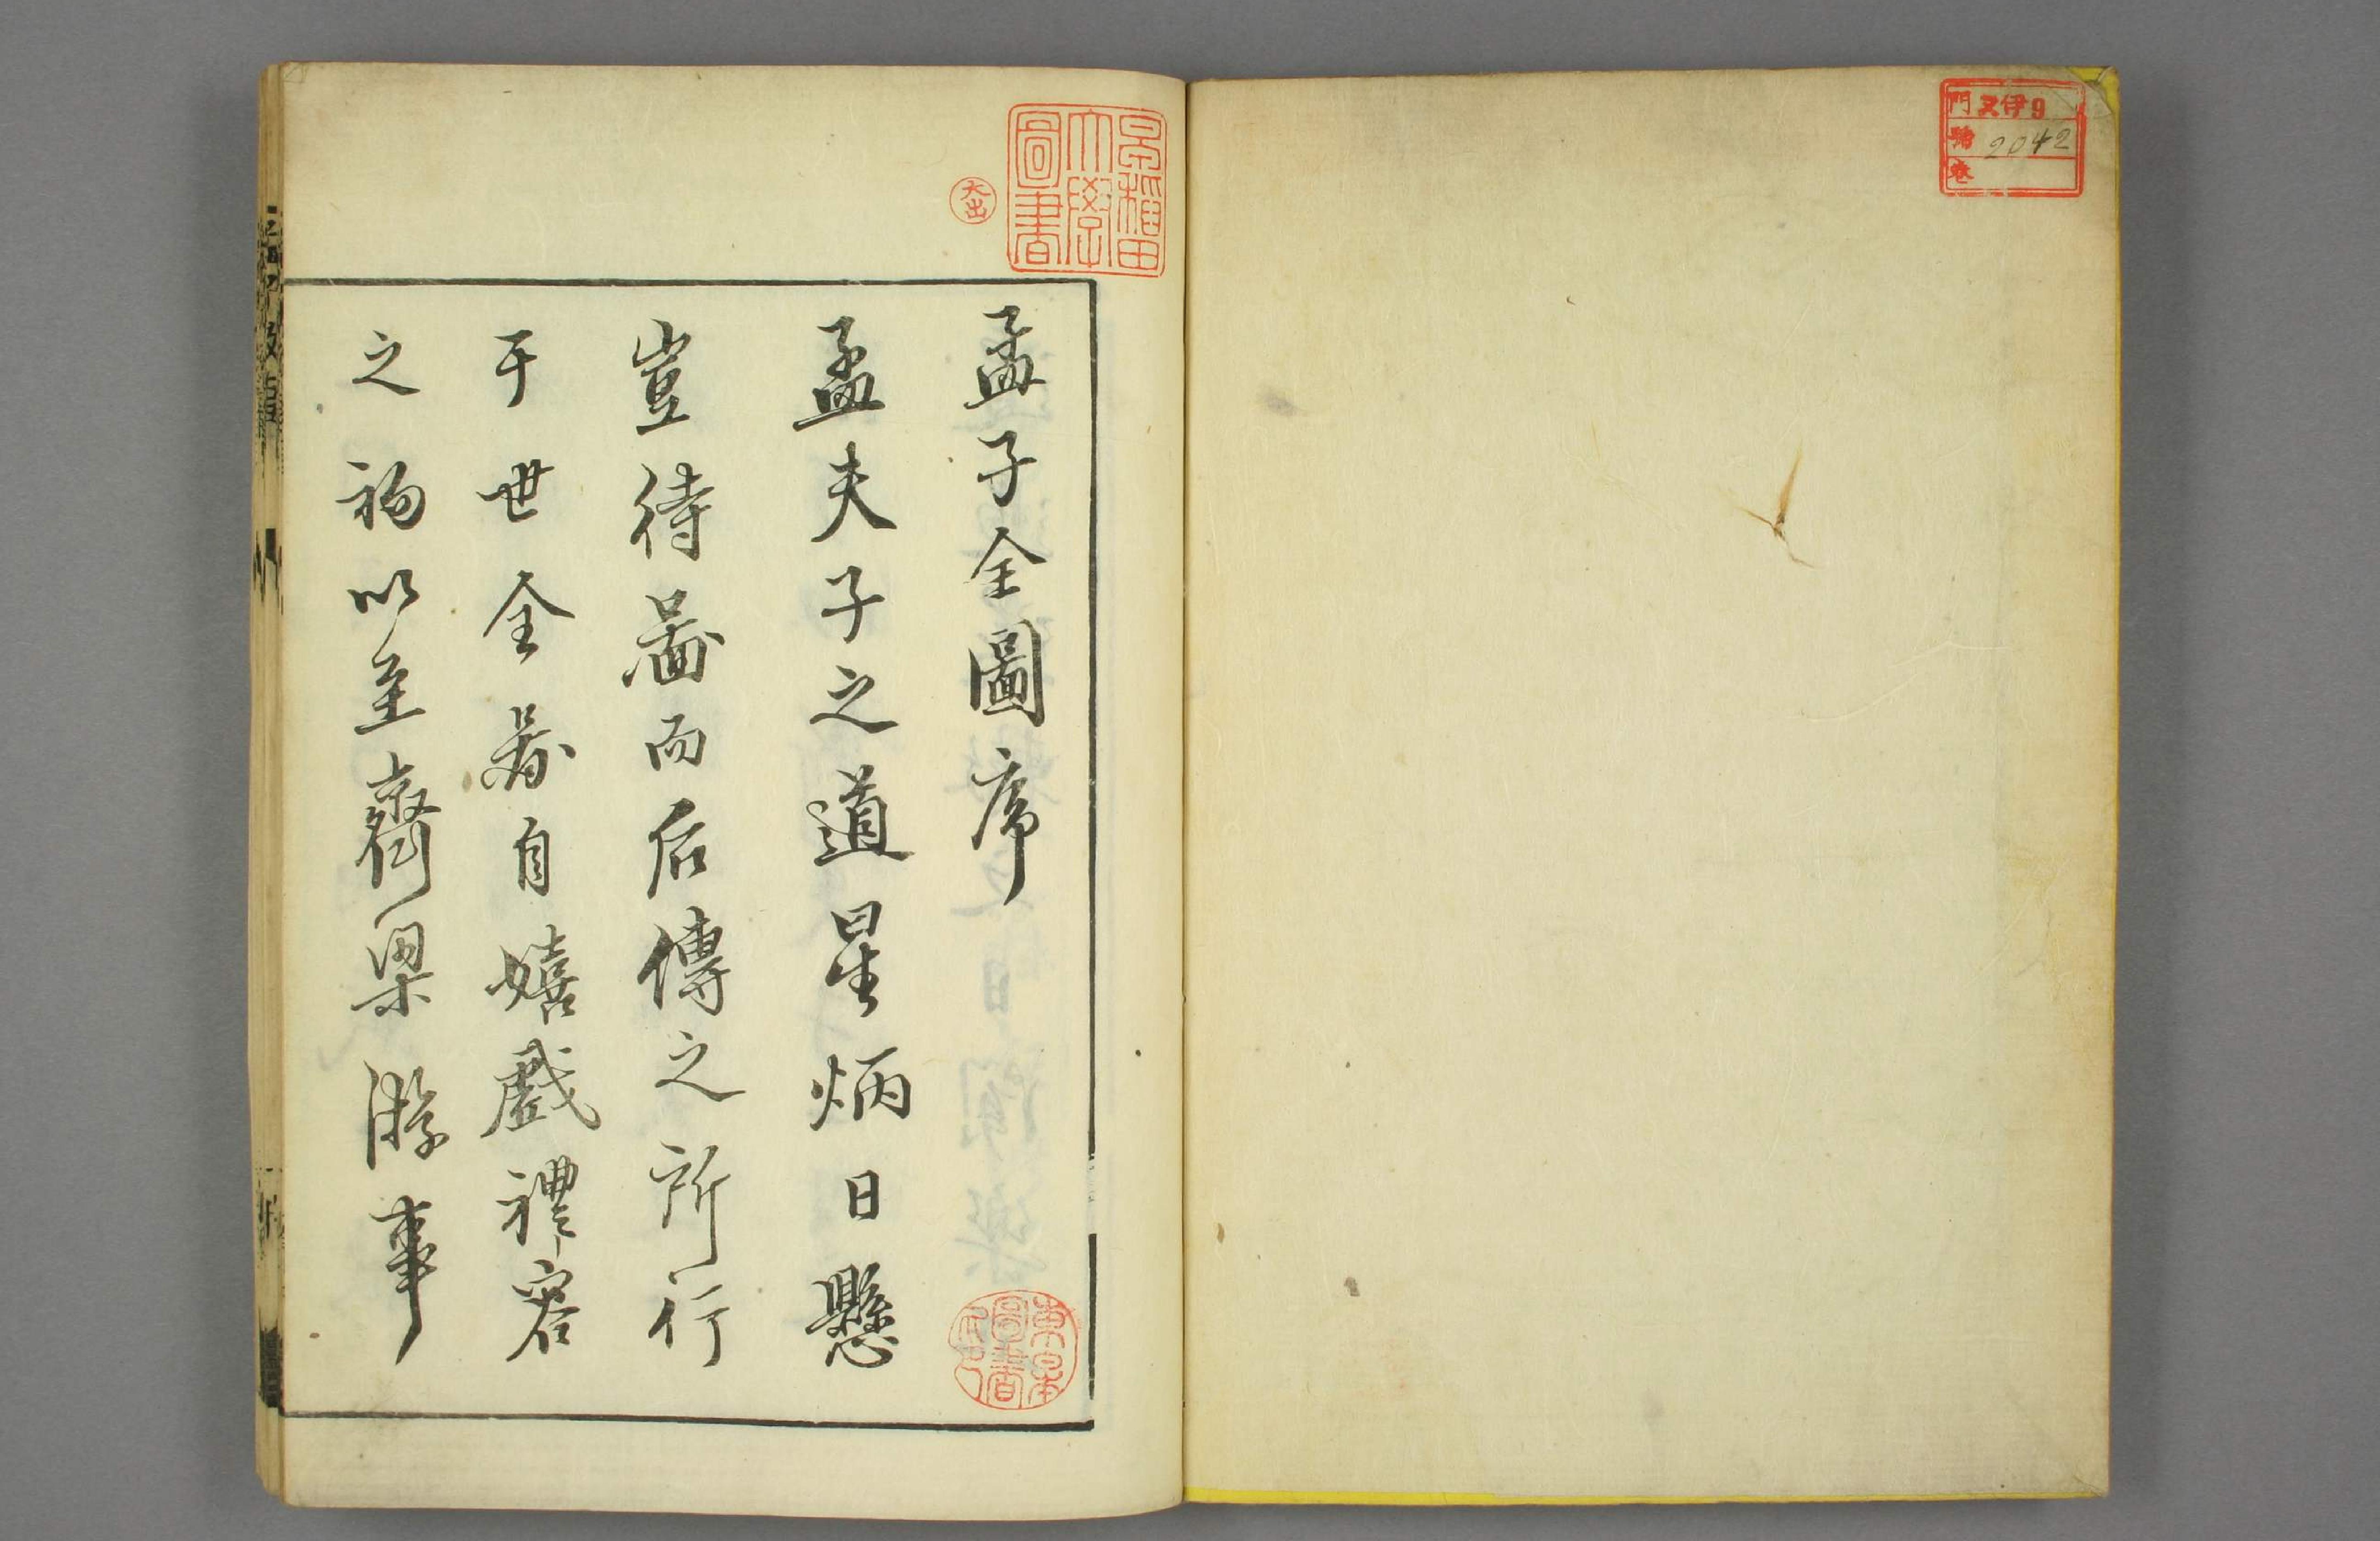 門 又伊9
號 2042
卷
早稲田
大學
圖書
大出
孟子全圖序
孟夫子之道星炳日懸
豈待圖而后傳之所行
于世全圖自嬉戲禮容
之初以至齊梁游事
圖書